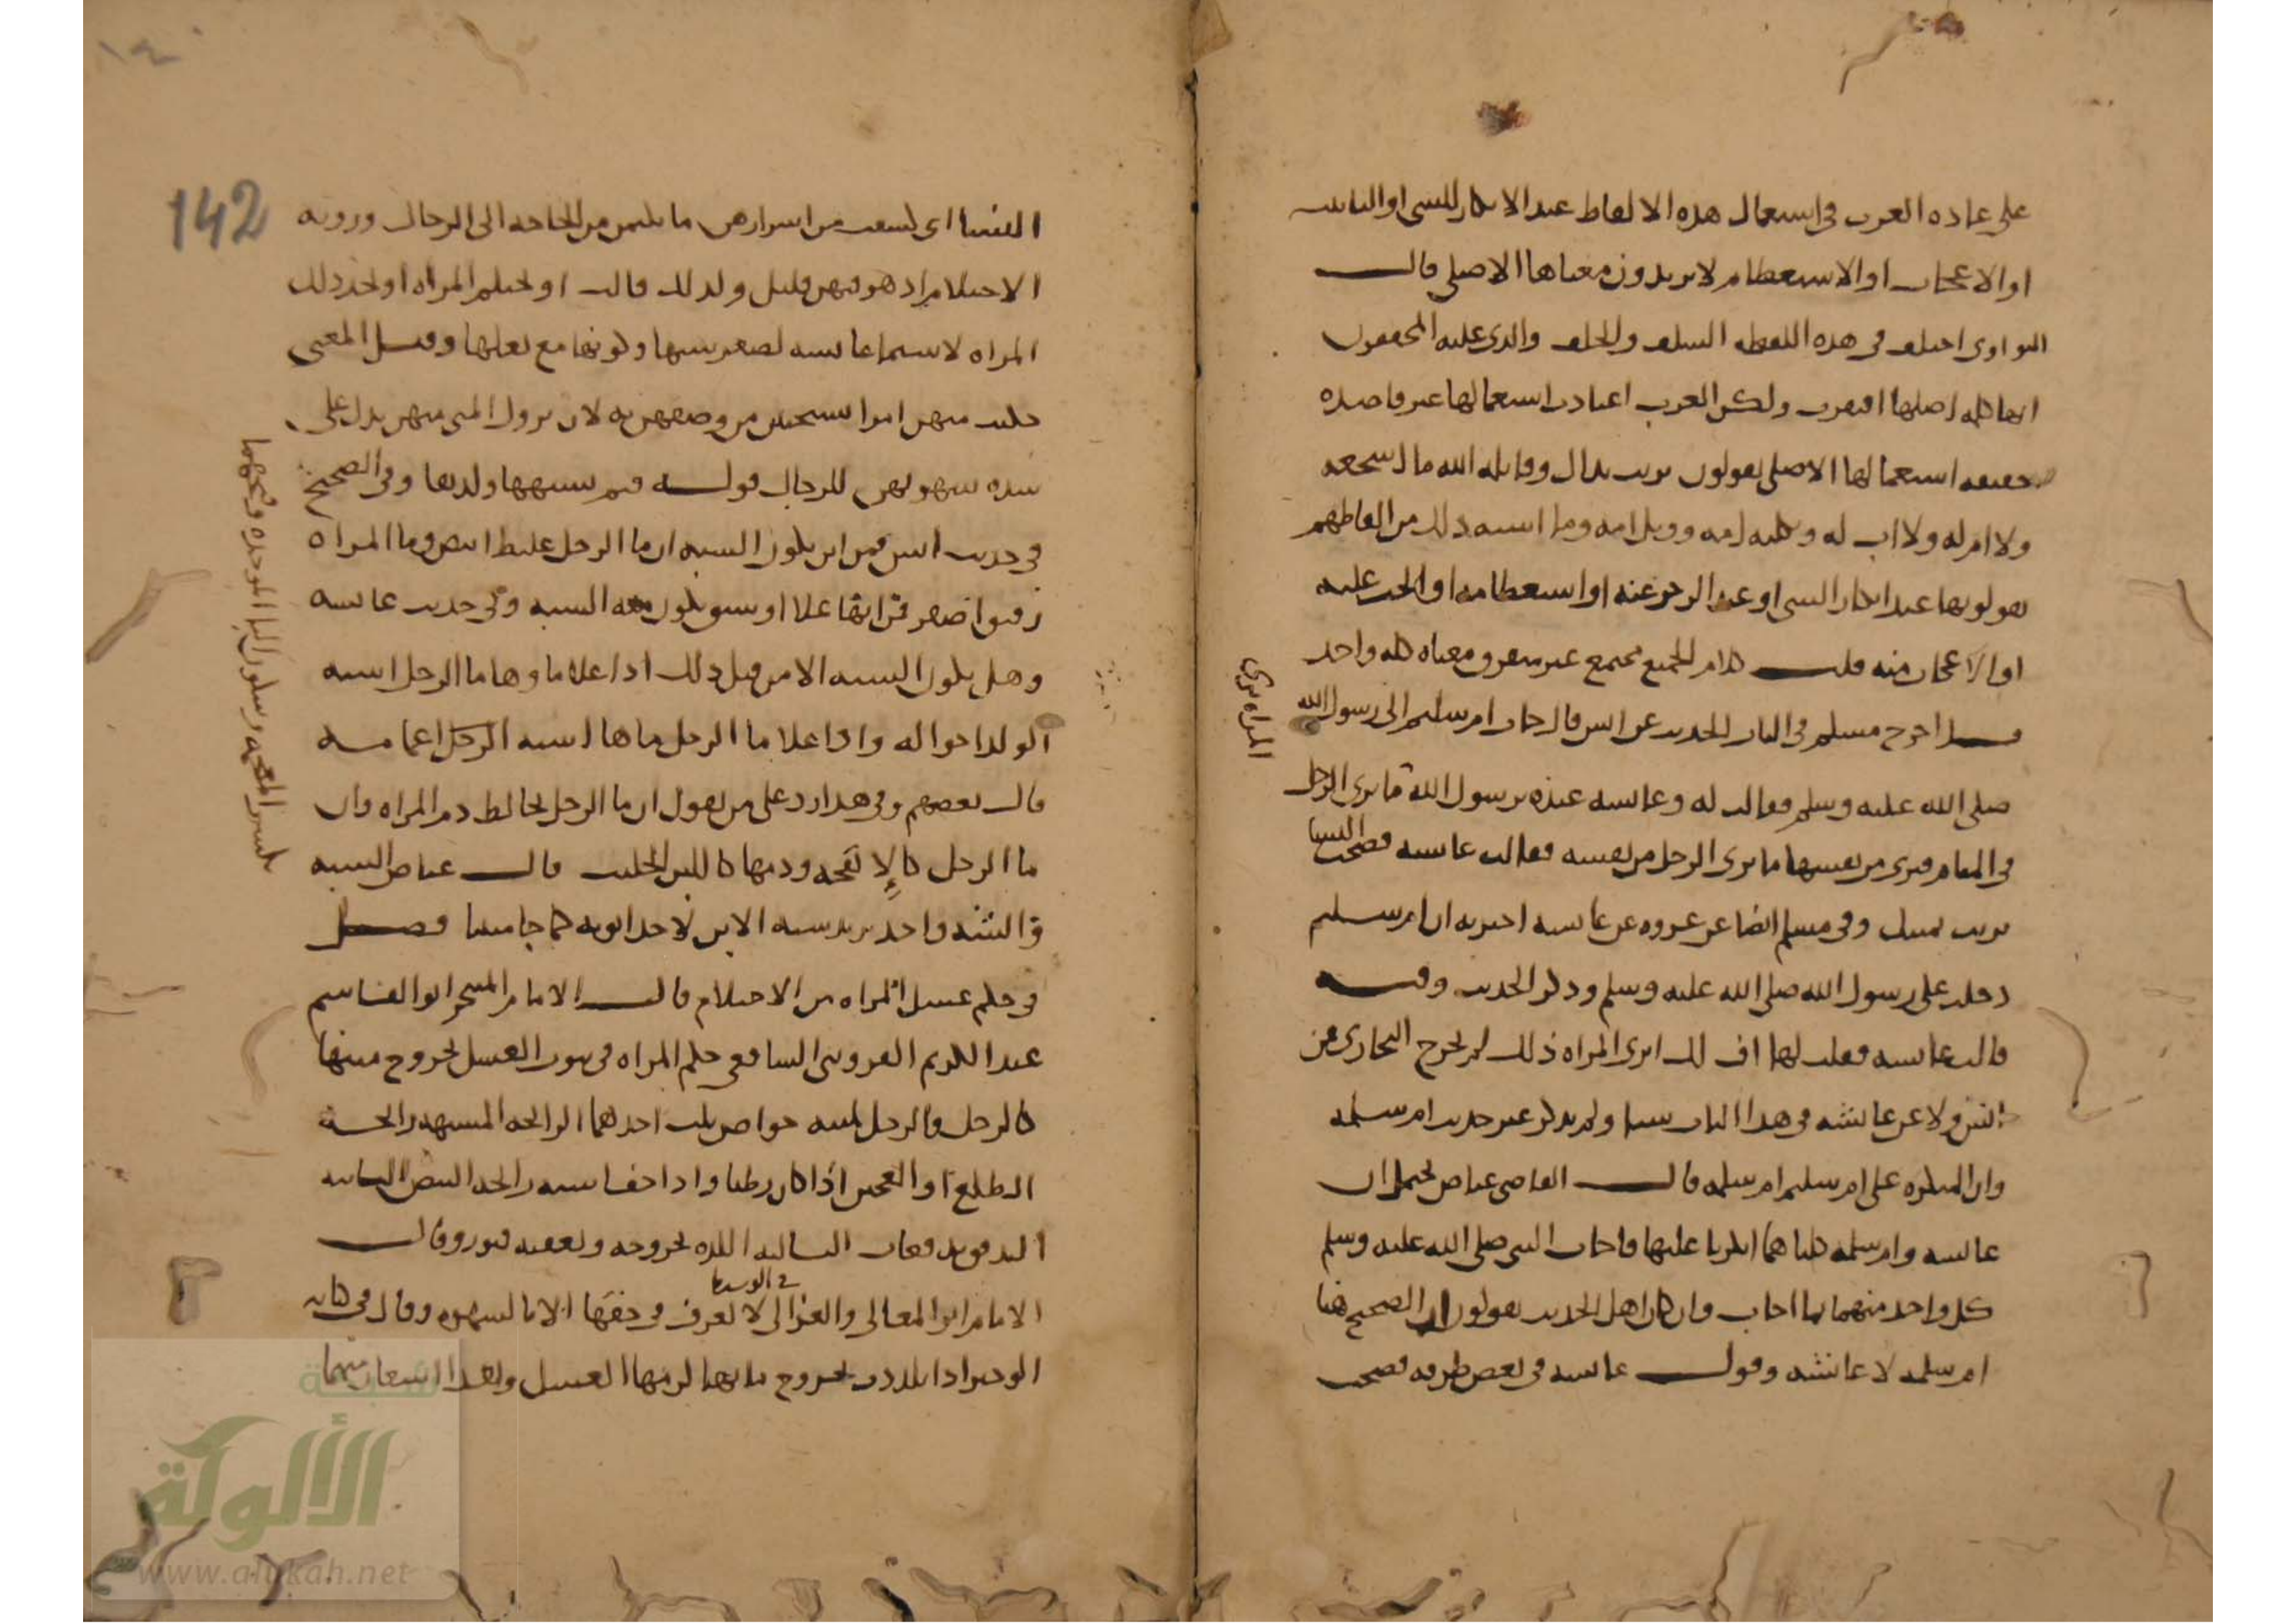 على عاده العرب في استعمال هذه الالفاظ عند الانكار للشي او التانيب
او الاعجاب او الاستعظام لا يريدون معناها الاصلي قال
النواوي اختلف في هذه اللفظه السلف والخلف والذي عليه المحققون
انها كلمه اصلها افتقرت ولكن العرب اعتادت استعمالها غير قاصده
حقيقه استعمالها الاصلي يقولون تربت يداك وقاتله الله ما اشجعه
ولا ام له ولا اب له و ثكلته امه وويل امه وما اشبه ذلك من الفاظهم
يقولونها عند انكار الشي او عند الزجر عنه او استعظامه او الحث عليه
او الاعجاب منه قلت كلام الجميع مجتمع غير متفرق ومعناه كله واحد
اخرج مسلم في الباب الحديث عن انس قال جات ام سليم الى رسول الله
صلى الله عليه وسلم فقالت له وعايشه عنده يرسول الله المراه ترى ما يرى الرجل
في المنام فترى من نفسها ما يرى الرجل من نفسه فقالت عايشه فضحت النسا
تربت يمينك وفي مسلم ايضا عن عروه عن عايشه اخبرته ان ام سليم
دخلت على رسول الله صلى الله عليه وسلم وذكر الحديث وفيه
قالت عايشه فقلت لها اف لك اترى المراه ذلك لم يخرج البخاري عن
انس ولا عن عائشه في هذا الباب شيا ولم يذكر غير حديث ام سلمه
وان المنكره على ام سليم ام سلمه قال القاضي عياض يحتمل ان
عايشه وام سلمه كلتاهما انكرتا عليها فاجاب النبي صلى الله عليه وسلم
كل واحد منهما بما اجاب وان كان اهل الحديث يقولون ان الصحيح هنا
ام سلمه لا عائشه وقول عايشه في بعض طرقه فضحت
النسا اي كشفت من اسرارهن ما يكتمن من الحاجه الى الرجال ورويه
الاحتلام اذ هو فيهن قليل ولذلك قالت او تحتلم المراه او تجد ذلك
المراه لا سيما عايشه لصغر سنها وكونها مع بعلها وقيل المعنى
حكيت منهن امرا يستحيين من وصفهن به لان نزول المني منهن يدل على
شده شهوتهن للرجال قوله فبم يشبهها ولدها وفي الصحيح
في حديث انس فمن اين يكون الشبه ان ما الرجل غليظ ابيض وما المراه
رقيق اصفر فمن ايهما علا او سبق يكون منه الشبه وفي حديث عايشه
وهل يكون الشبه الا من قبل ذلك اذا علا ماوها ما الرجل اشبه
الولد اخواله واذا علا ما الرجل ماها اشبه الرجل اعمامه
قال بعضهم وفي هذا رد على من يقول ان ما الرجل يخالط دم المراه وان
ما الرجل كالانفحه ودمها كاللبن الحليب قال عياض الشبه
والشبه واحد يريد شبه الابن لاحد ابويه كما جا مبينا فصل
في حكم غسل المراه من الاحتلام قال الامام ابو القاسم
عبد الكريم القزويني الشافعي حكم المراه في ثبوت الغسل بخروج منيها
كالرجل والرجل لمنيه خواص ثلث احدهما الرايحه المشبهه رايحة
الطلع او العجين اذا كان رطبا واذا جف اشبه رايحه البيض الثانيه
التدفق بدفعات الثالثه التلذذ بخروجه وتعقبه فتور وقال
الامام ابو المعالي والغزالي في الوسيط لا يعرف في حقها الا بالشهوه وقال في كتابه
الوجيز اذا تلذذت بخروج مايها لزمها الغسل
المراه ترى
بكسر المعجمه وسكون البا الموحده وفتحهما
142
شبكة
الألوكة
www.alukah.net